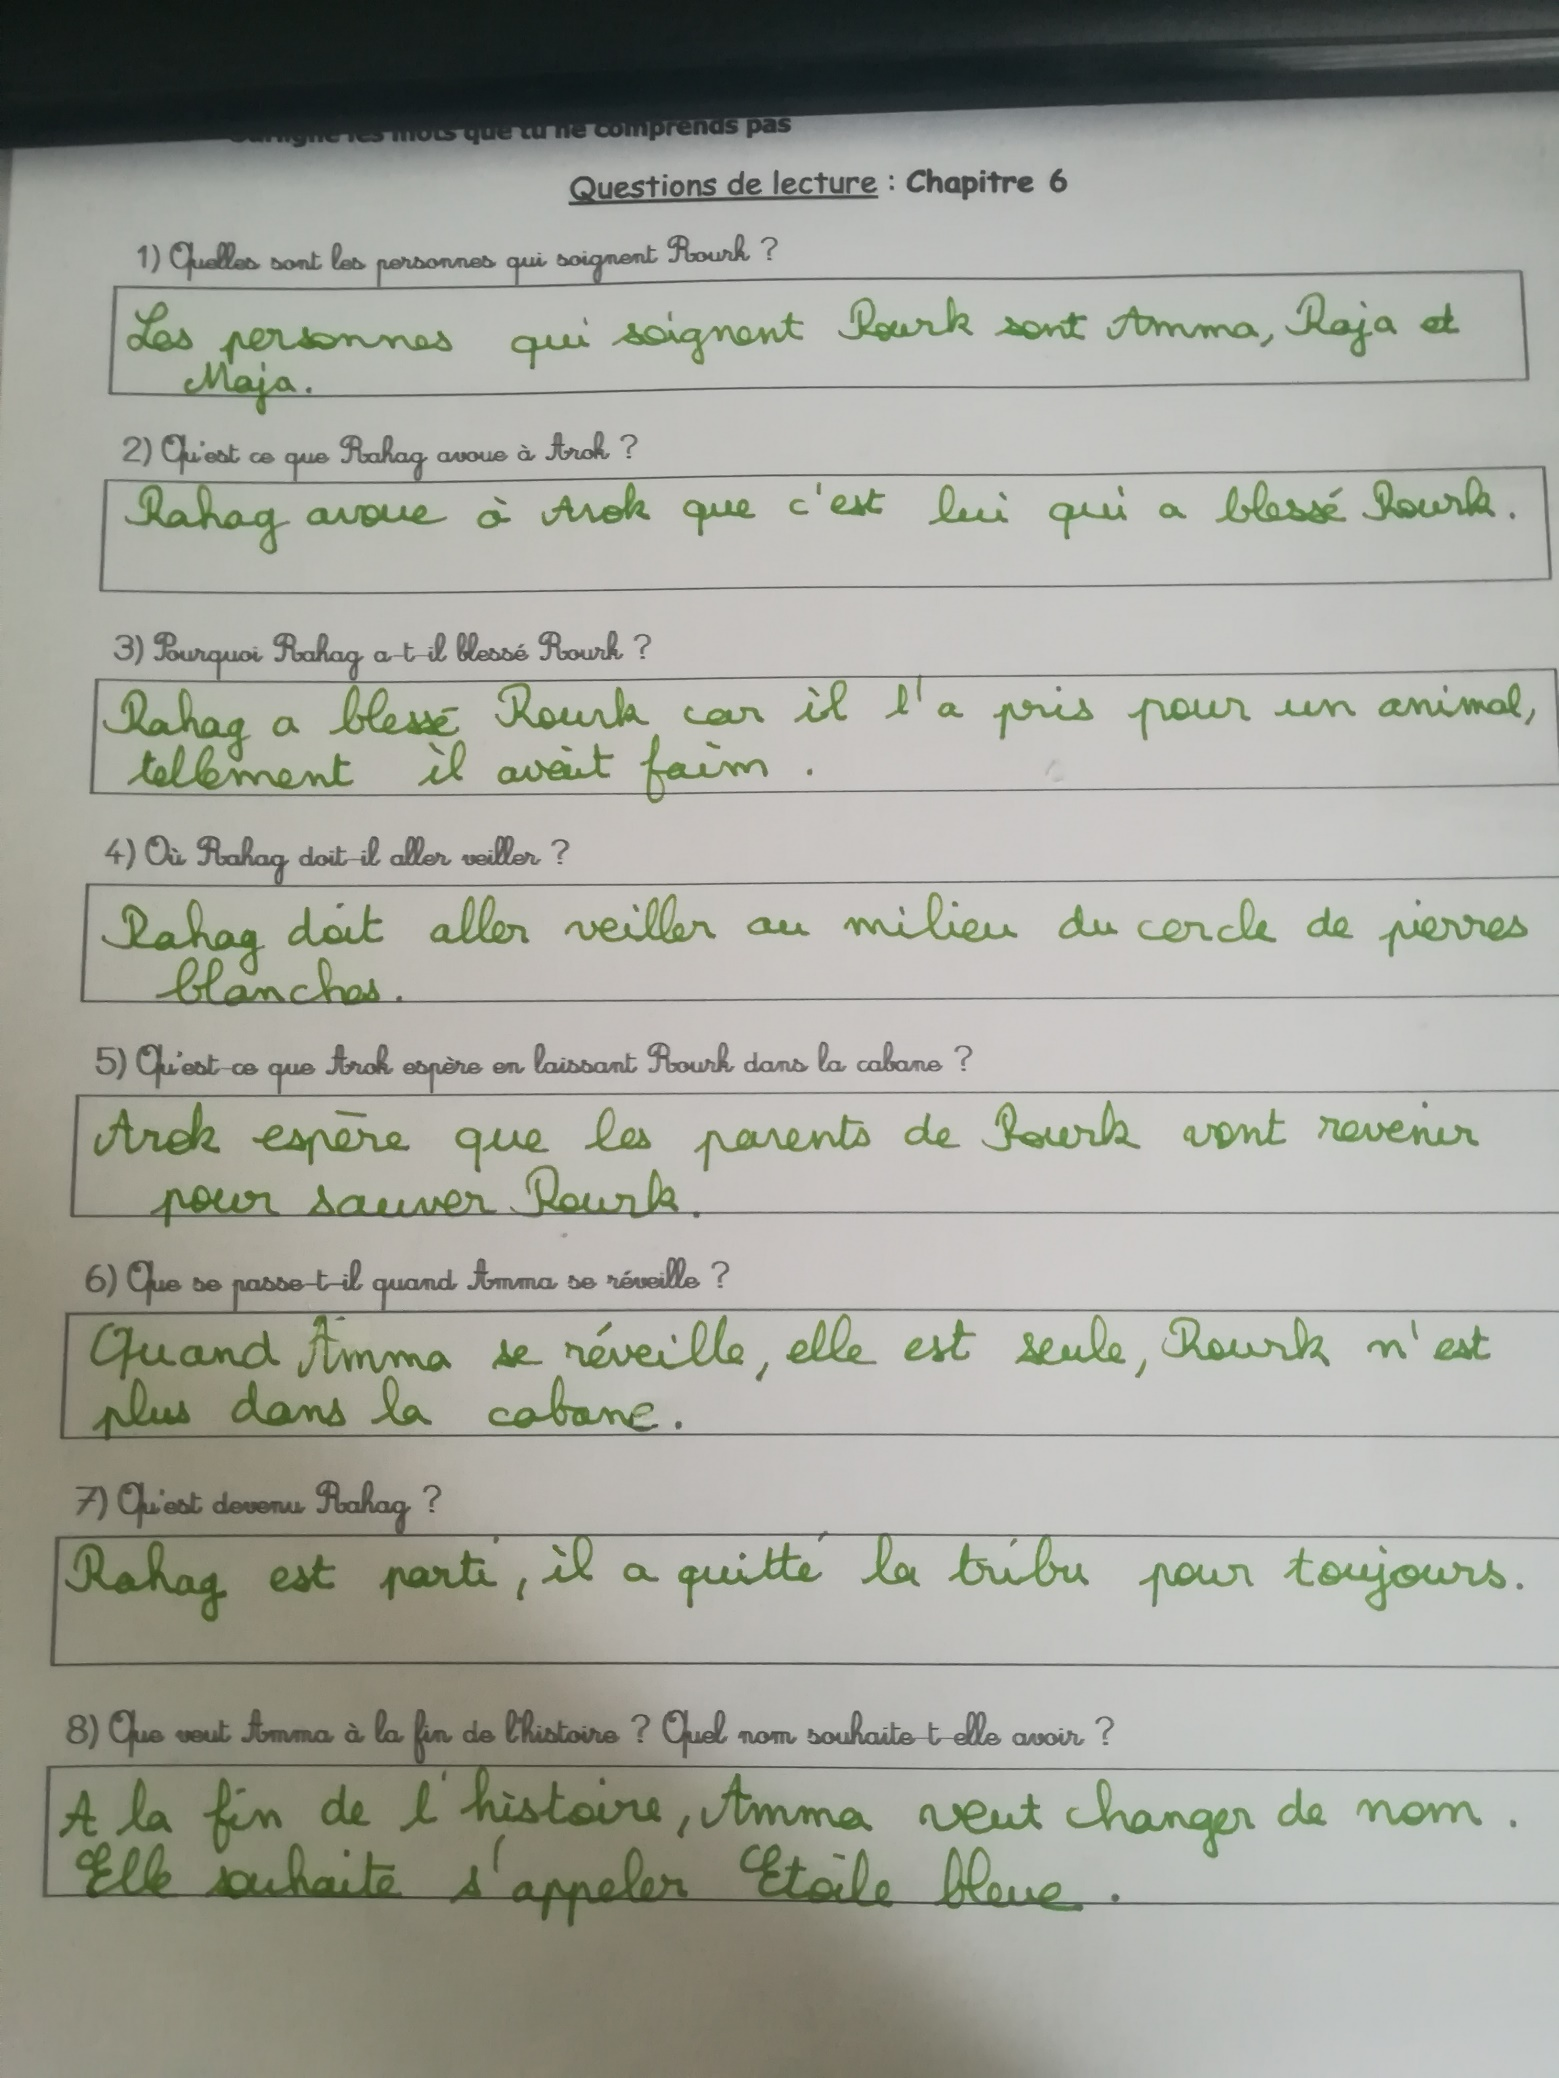 les mots que tu ne comprends pas
Questions de lecture : Chapitre 6
1) Quelles sont les personnes qui soignent Rourk ?
Les personnes qui soignent Rourk sont Amma, Raja et
Maja.
2) Qu'est ce que Rahag avoue à Arok ?
Rahag avoue à Arok que c'est lui qui a blessé Rourk.
3) Pourquoi Rahag a-t-il blessé Rourk ?
Rahag a blessé Rourk car il l'a pris pour un animal,
tellement il avait faim.
4) Où Rahag doit-il aller veiller ?
Rahag doit aller veiller au milieu du cercle de pierres
blanches.
5) Qu'est-ce que Arok espère en laissant Rourk dans la cabane ?
Arok espère que les parents de Rourk vont revenir
pour sauver Rourk.
6) Que se passe-t-il quand Amma se réveille ?
Quand Amma se réveille, elle est seule, Rourk n'est
plus dans la cabane.
7) Qu'est devenu Rahag ?
Rahag est parti, il a quitté la tribu pour toujours.
8) Que veut Amma à la fin de l'histoire ? Quel nom souhaite-t-elle avoir ?
A la fin de l'histoire, Amma veut changer de nom.
Elle souhaite s'appeler Etoile bleue.